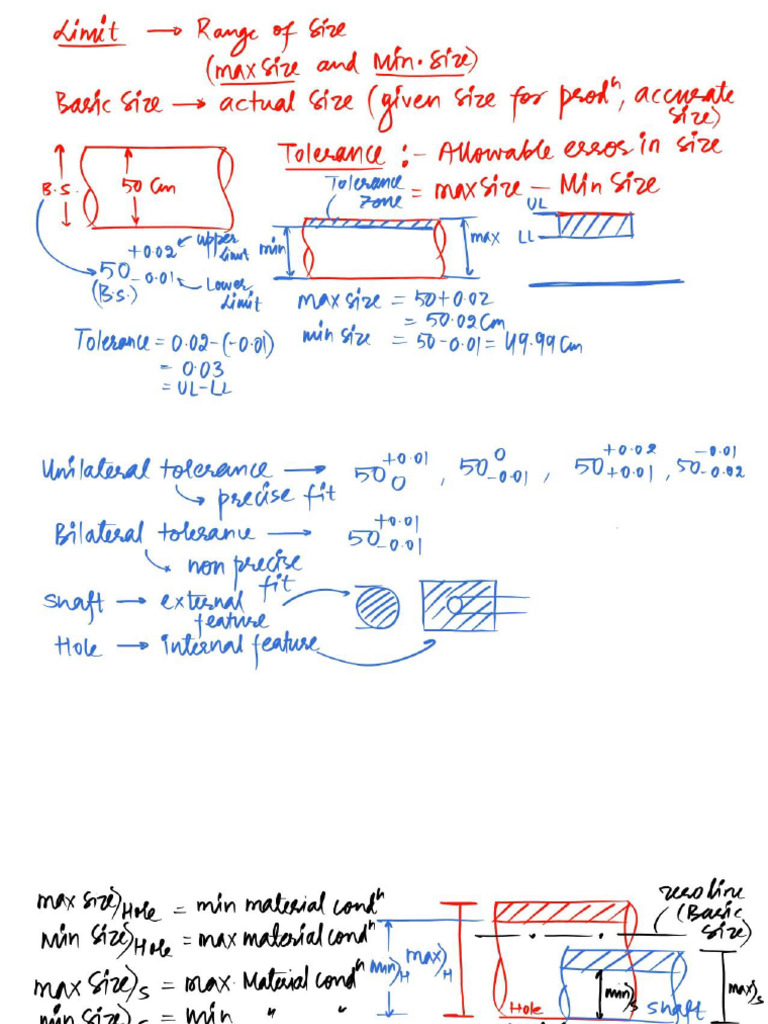 Limit → Range of size
(max size and Min. size)
Basic size → actual size (given size for prodⁿ, accurate size)
Tolerance :- Allowable erros in size
= max size − Min size
B.S.
50 Cm
Tolerance zone
min
max
UL
LL
50 +0.02 -0.01
upper limit
Lower limit
(B.S.)
max size = 50+0.02
= 50.02 Cm
min size = 50-0.01 = 49.99 Cm
Tolerance = 0.02-(-0.01)
= 0.03
= UL-LL
Unilateral tolerance → 50 +0.01 0 , 50 0 -0.01 , 50 +0.02 +0.01 , 50 -0.01 -0.02
precise fit
Bilateral tolerance → 50 +0.01 -0.01
non precise fit
shaft → external feature
Hole → internal feature
max size)Hole = min material condⁿ
Min size)Hole = max material condⁿ
max size)s = max. Material condⁿ
min size)s = min " "
min)H
max)H
zero line (Basic size)
Hole
min)s
shaft
max)s